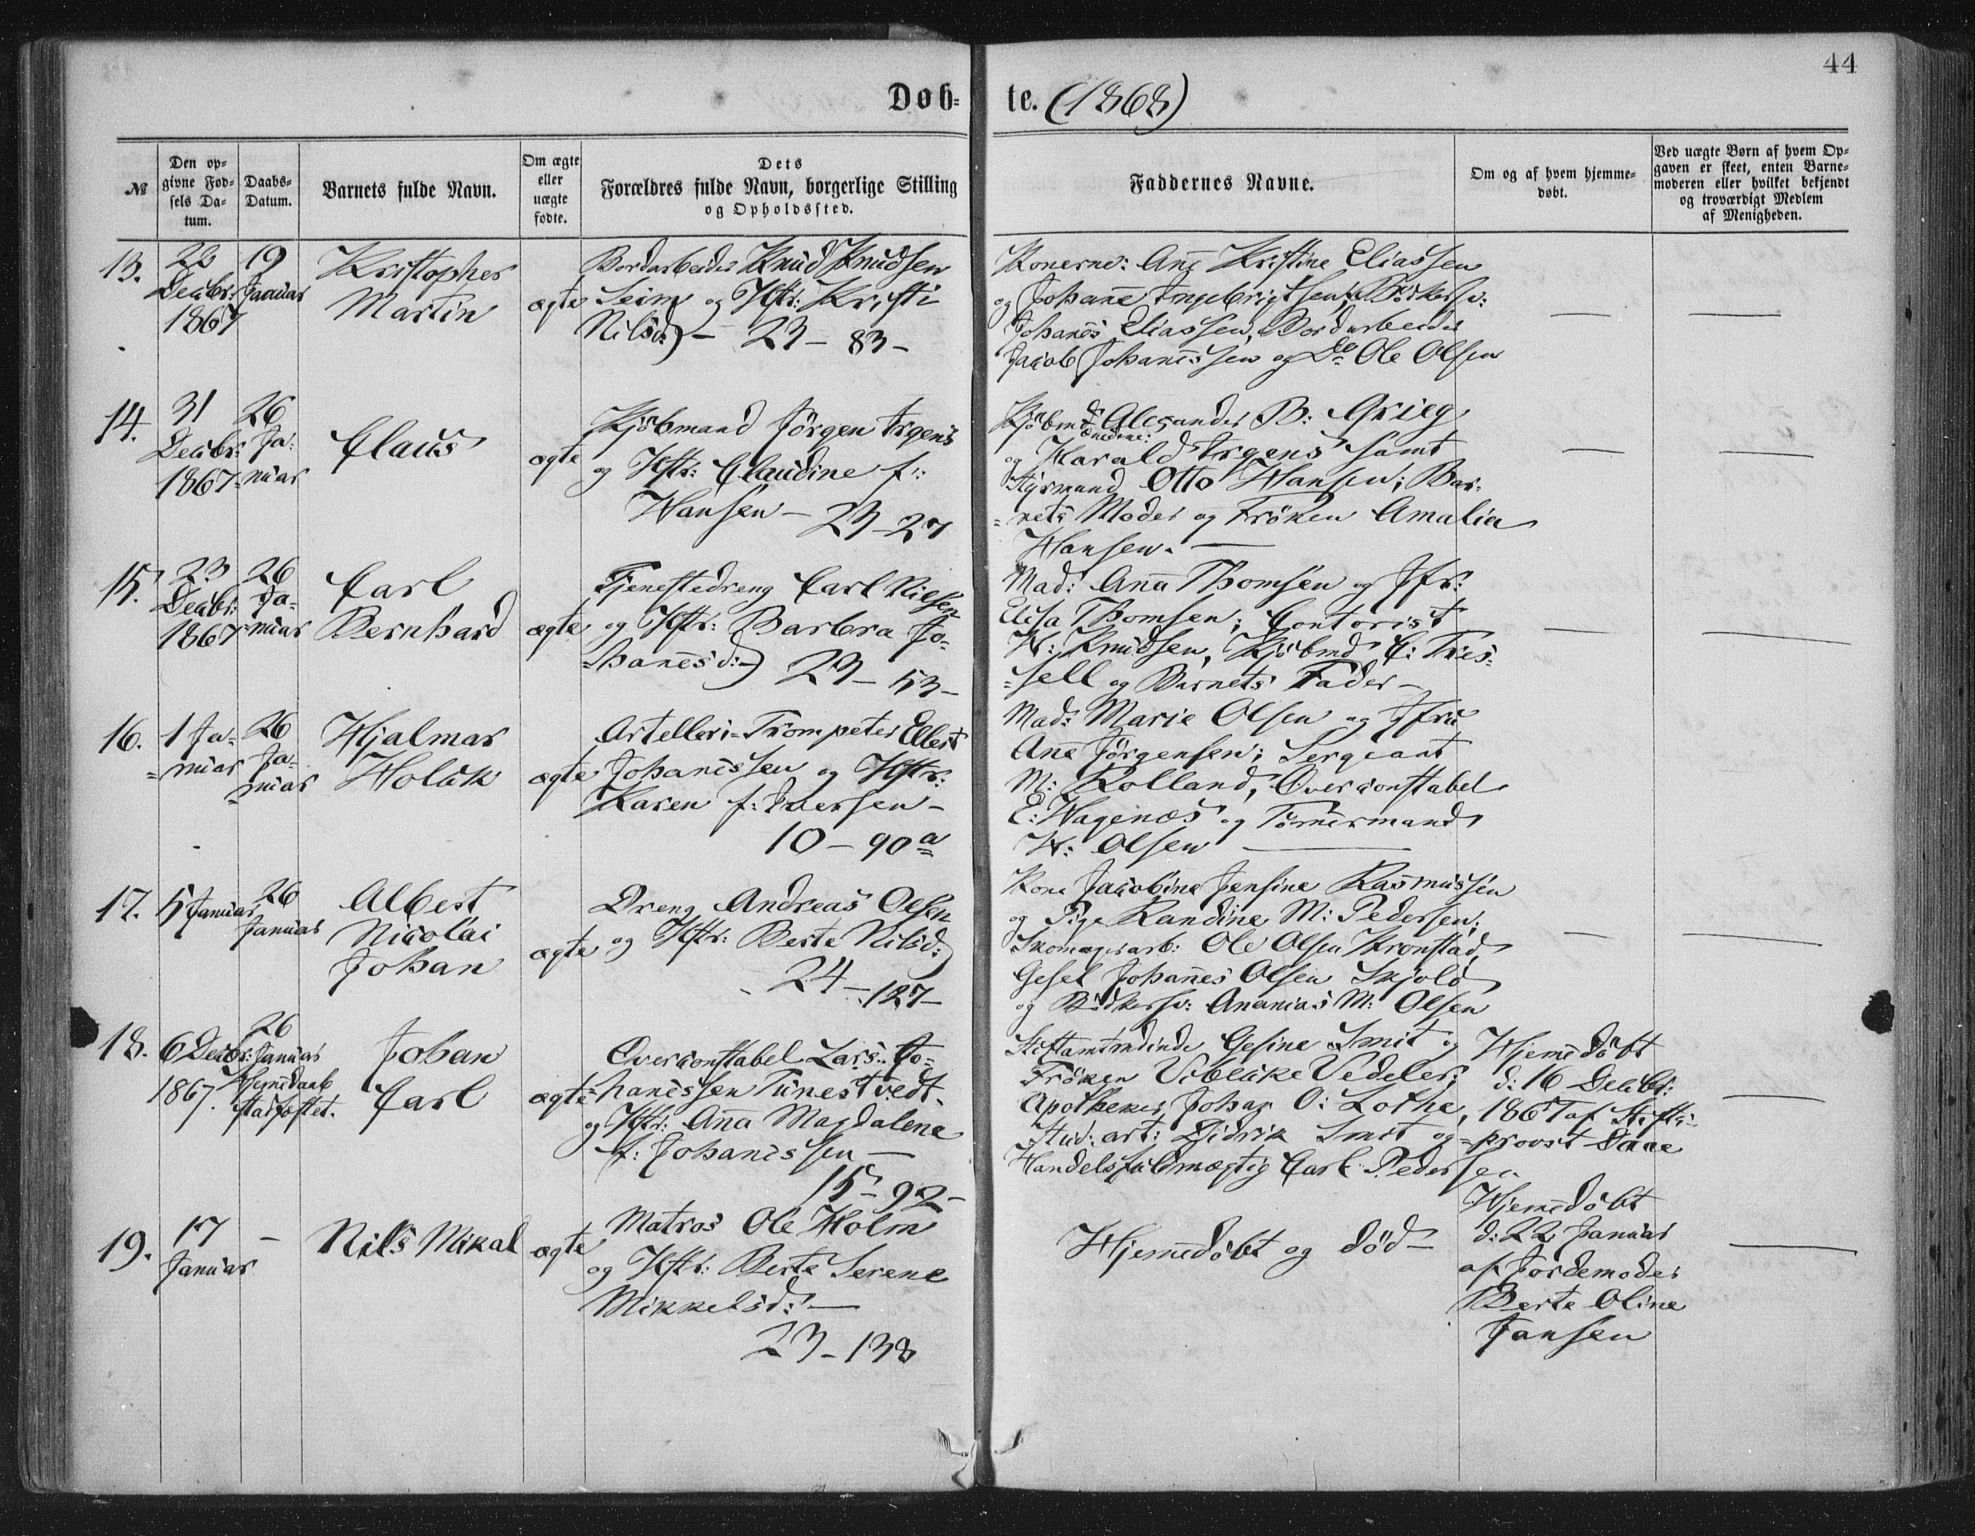 44
Døb= te. (1868)
№
Den op=
givne Fød=
sels Da=
tum.
Daabs=
Datum.
Barnets fulde Navn.
Om ægte
eller
uægte
fødte.
Dets
Forældres fulde Navn, borgerlige Stilling
og Opholdssted.
Faddernes Navne.
Om og af hvem hjemme=
døbt.
Ved uægte Børn af hvem Op=
gaven er skeet, enten Barne=
moderen eller hvilket bekjendt
og troværdigt Medlem
af Menigheden.
13.
22
Decbr:
1867
19
Januar
Kristopher
Martin
ægte
Bordarbeider Knud Knudsen
Seim og Hstr: Kristi
Nilsd:) — 23 — 83 —
Konerne: Ane Kristine Eliassen
og Johane Ingebrigtsen; Bødkersv:
Johanes Eliassen, Bordarbeider
Jacob Johanessen og Do Ole Olsen
14.
31
Decbr:
1867
26
Ja:
nuar
Claus
ægte
Kjøbmand Jørgen Irgens
og Hstr: Claudine f:
Hansen — 23 — 27
Kjøbmd Alexander B: Grieg
og Harald Irgens samt
Styrmand Otto Hansen; Bar=
=nets Moder og Frøken Amalia
Hansen. —
15.
23
Decbr:
1867
26
Ja=
nuar
Carl
Bernhard
ægte
Tjenestedreng Carl Nilsen
og Hstr: Barbra Jo=
=hanesd:) 23 — 53 —
Mad: Ana Thomsen og Jfr:
Elisa Thomsen; Contorist
K: Knudsen, Kjøbmd C: Tres=
=sell og Barnets Fader —
16.
1 Ja=
=nuar
26
Ja=
=nuar
Hjalmar
Holck
ægte
Artelleri=Trompeter Ellert
Johanessen og Hstr:
Karen f: Iversen —
10 — 90 a
Mad: Marie Olsen og Jfru
Ane Jørgensen; Sergeant
M: Rolland, Overconstabel
E: Hagenæs og Tømermand
H: Olsen —
17.
5 Januar
26
Januar
Albert
Nicolai
Johan
ægte
Dreng Andreas Olsen
og Hstr: Berte Nilsd:)
24 — 127 —
Kone Jacobine Jensine Rasmussen
og Pige Randine M: Pedersen;
Skomagerarb: Ole Olsen Kronstad,
Gesel Johanes Olsen Skjold
og Bødkersv: Ananias M: Olsen
18.
6 Decbr:
1867.
26
Januar
Hjemedaab
stadfæstet.
Johan
Carl
ægte
Overconstabel Lars Jo=
=hanessen Tunestvedt
og Hstr: Ana Magdalene
f: Johanessen —
15 — 92 —
Stiftamtmdinde Gesine Smit og
Frøken Vibeke Vedeler;
Apotheker Johan O: Lothe,
Stud: art: Didrik Smit og
Handelsfuldmægtig Carl Pedersen.
Hjemedøbt
d: 16 Decbr:
1867 af Stifts=
=provst Daae
19.
17
Januar
—
Nils Mikal
ægte
Matros Ole Holm
og Hstr: Berte Serene
Mikkelsd: —
23 — 138
Hjemedøbt og død —
Hjemedøbt
d: 22 Januar
af Jordemoder
Berte Oline
Jansen